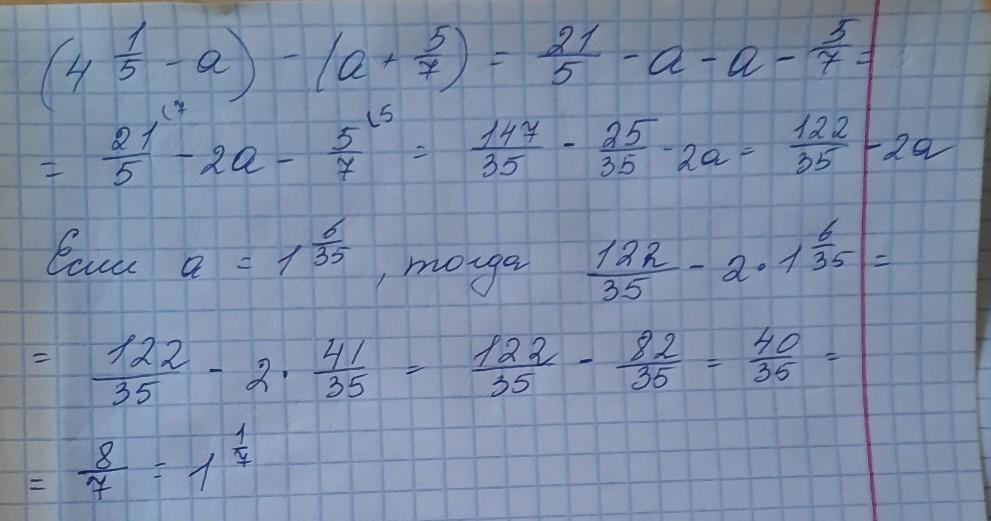 (4 1/5 - a) - (a + 5/7) = 21/5 - a - a - 5/7 =
= 21/5 (7 - 2a - 5/7 (5 = 147/35 - 25/35 - 2a = 122/35 - 2a
Если a = 1 6/35, тогда 122/35 - 2 · 1 6/35 =
= 122/35 - 2 · 41/35 = 122/35 - 82/35 = 40/35 =
= 8/7 = 1 1/7